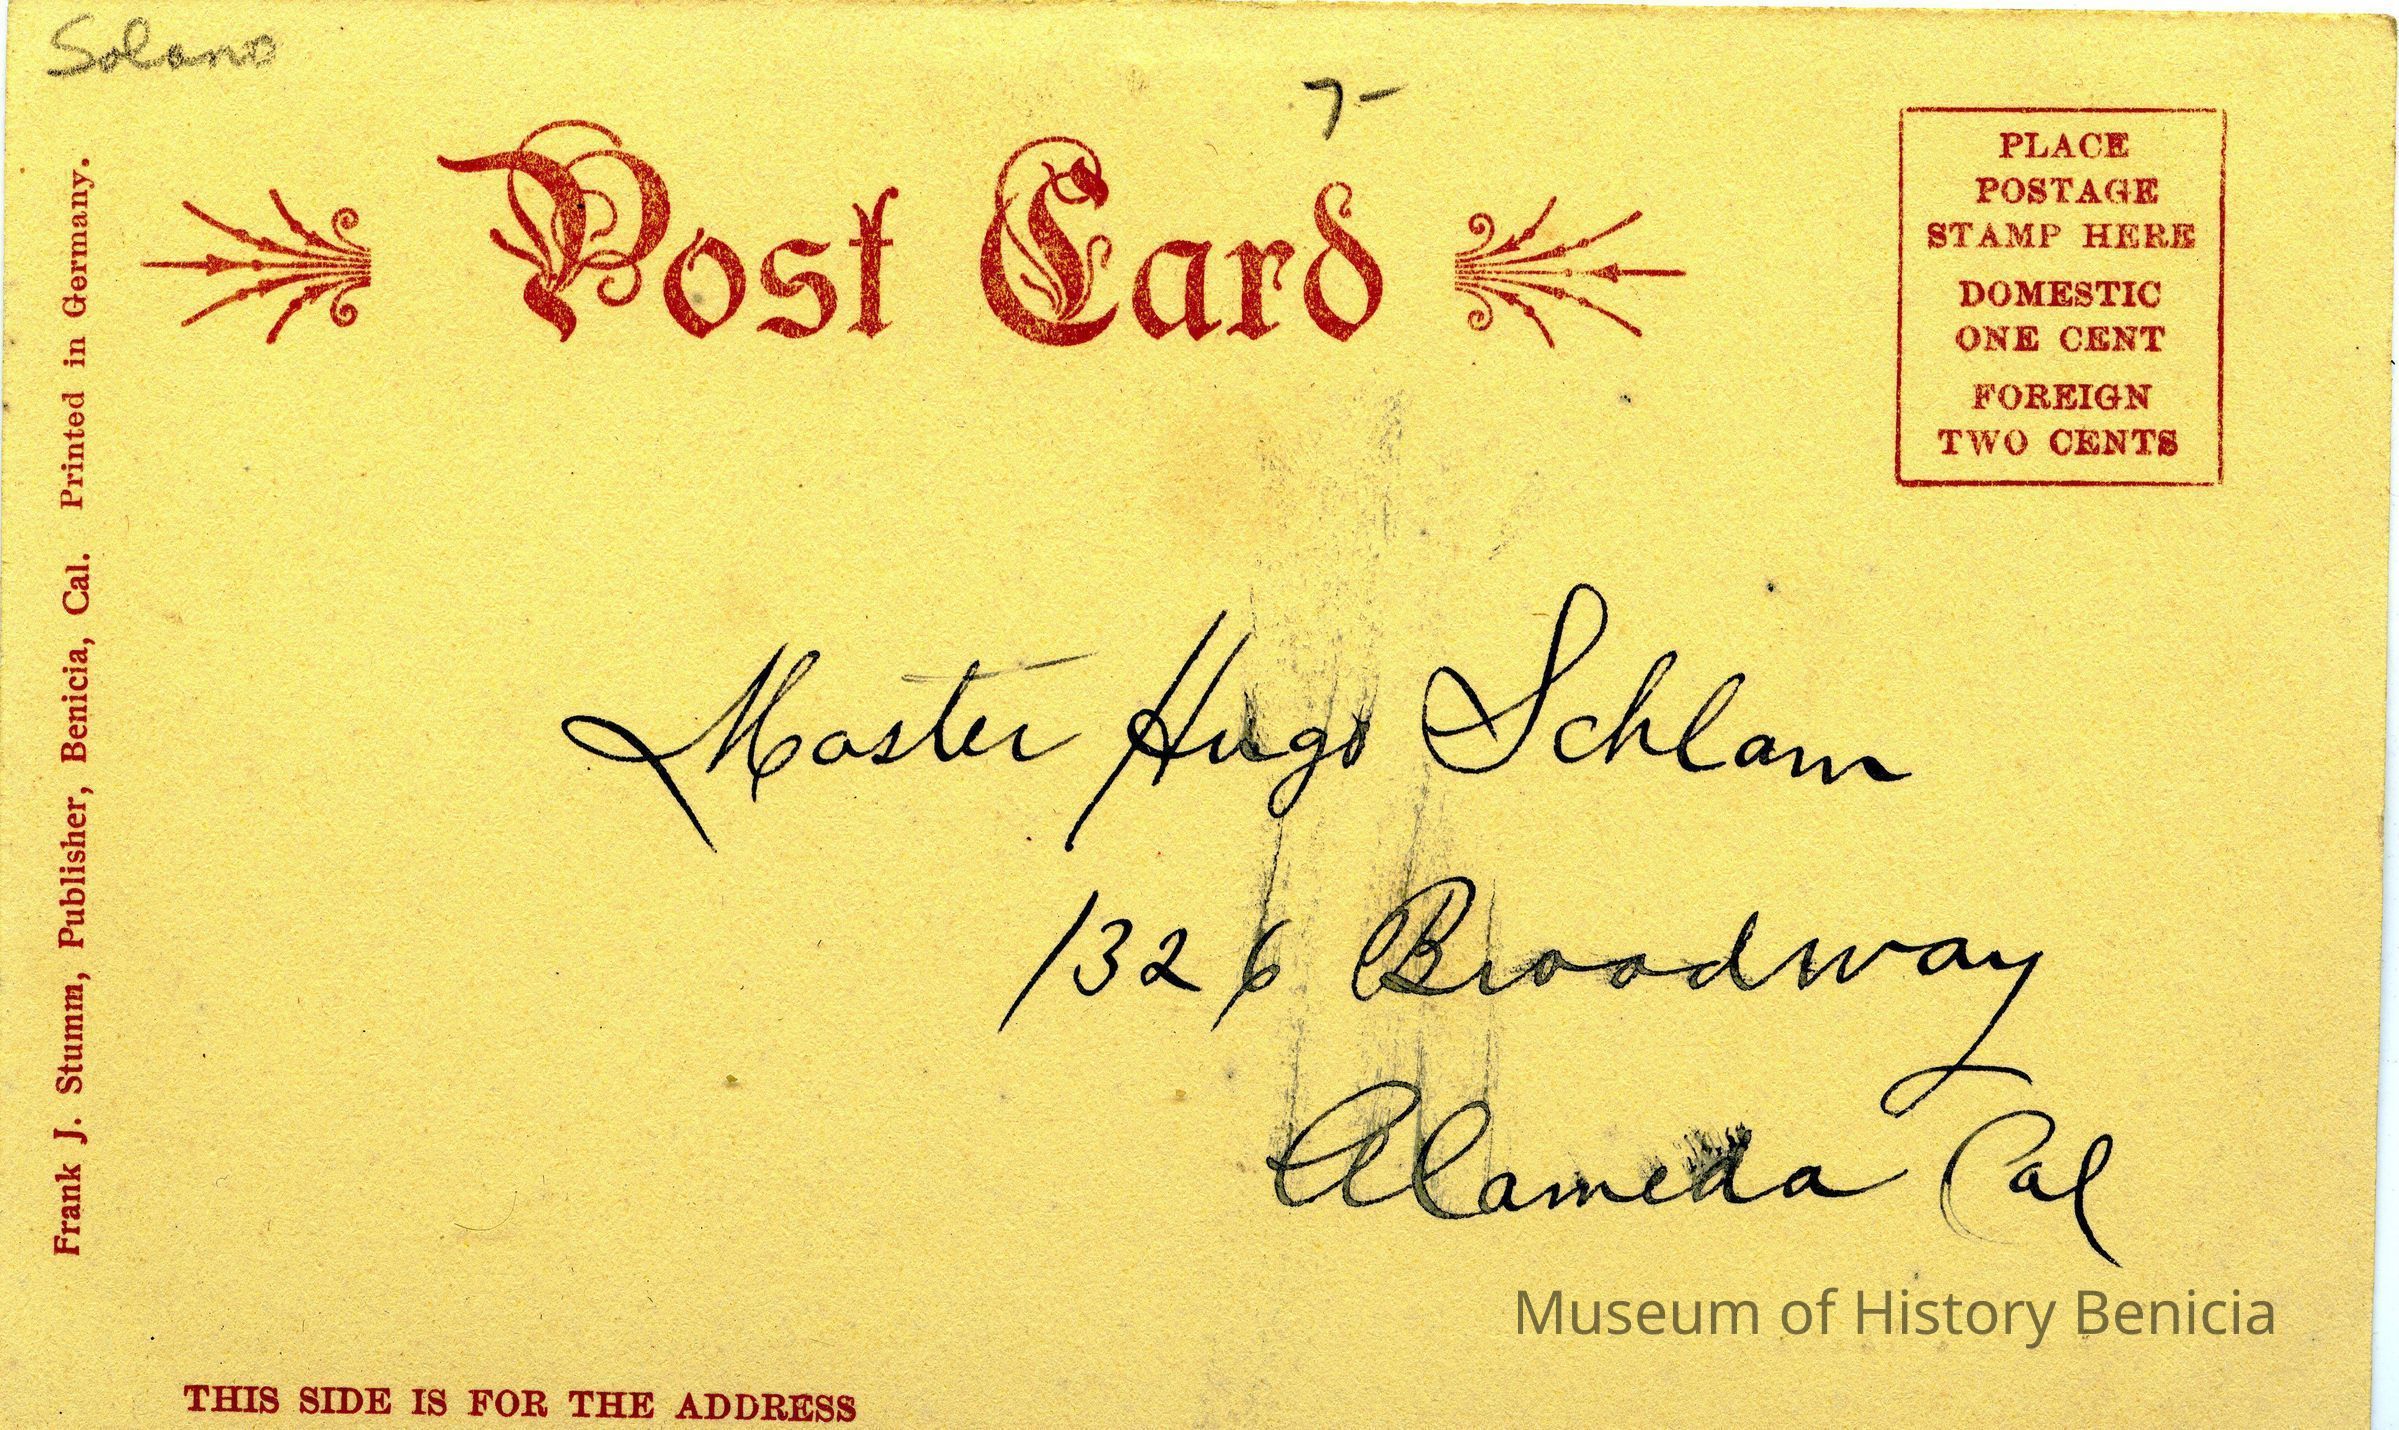 Solano
7-
Post Card
PLACE
POSTAGE
STAMP HERE
DOMESTIC
ONE CENT
FOREIGN
TWO CENTS
Frank J. Stumm, Publisher, Benicia, Cal. Printed in Germany.
Master Hugo Schlam
1326 Broadway
Alameda Cal
Museum of History Benicia
THIS SIDE IS FOR THE ADDRESS